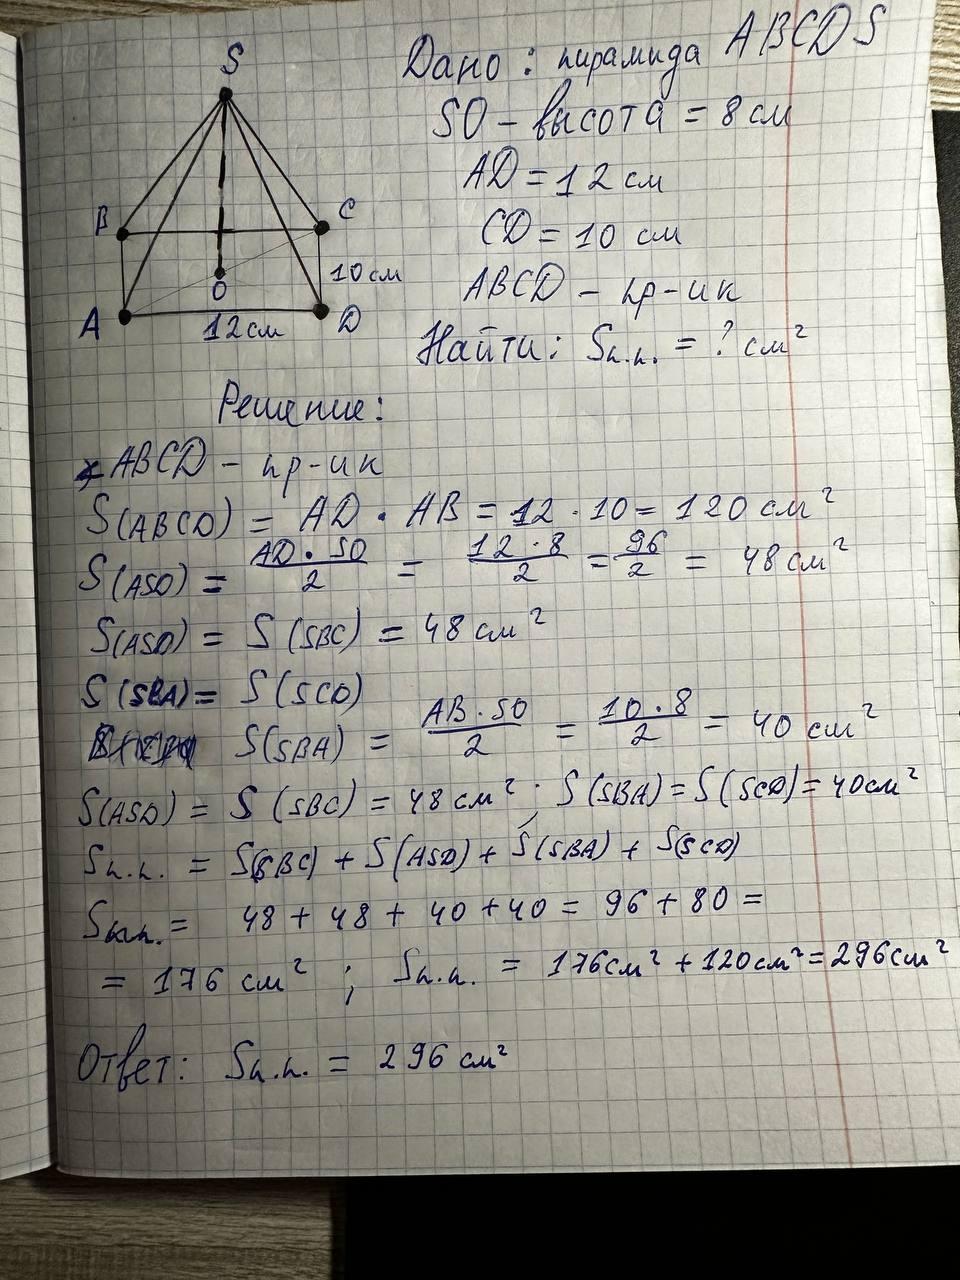 S
B
C
O
A
D
10 см
12 см
Дано: пирамида ABCDS
SO - высота = 8 см
AD = 12 см
CD = 10 см
ABCD - пр-ик
Найти: Sп.п. = ? см²
Решение:
ABCD - пр-ик
S(ABCD) = AD · AB = 12 · 10 = 120 см²
S(ASD) = AD · SO / 2 = 12 · 8 / 2 = 96 / 2 = 48 см²
S(ASD) = S(SBC) = 48 см²
S(SBA) = S(SCD)
S(SBA) = AB · SO / 2 = 10 · 8 / 2 = 40 см²
S(ASD) = S(SBC) = 48 см²; S(SBA) = S(SCD) = 40 см²
Sп.п. = S(SBC) + S(ASD) + S(SBA) + S(SCD)
Sб.п. = 48 + 48 + 40 + 40 = 96 + 80 =
= 176 см²; Sп.п. = 176 см² + 120 см² = 296 см²
Ответ: Sп.п. = 296 см²